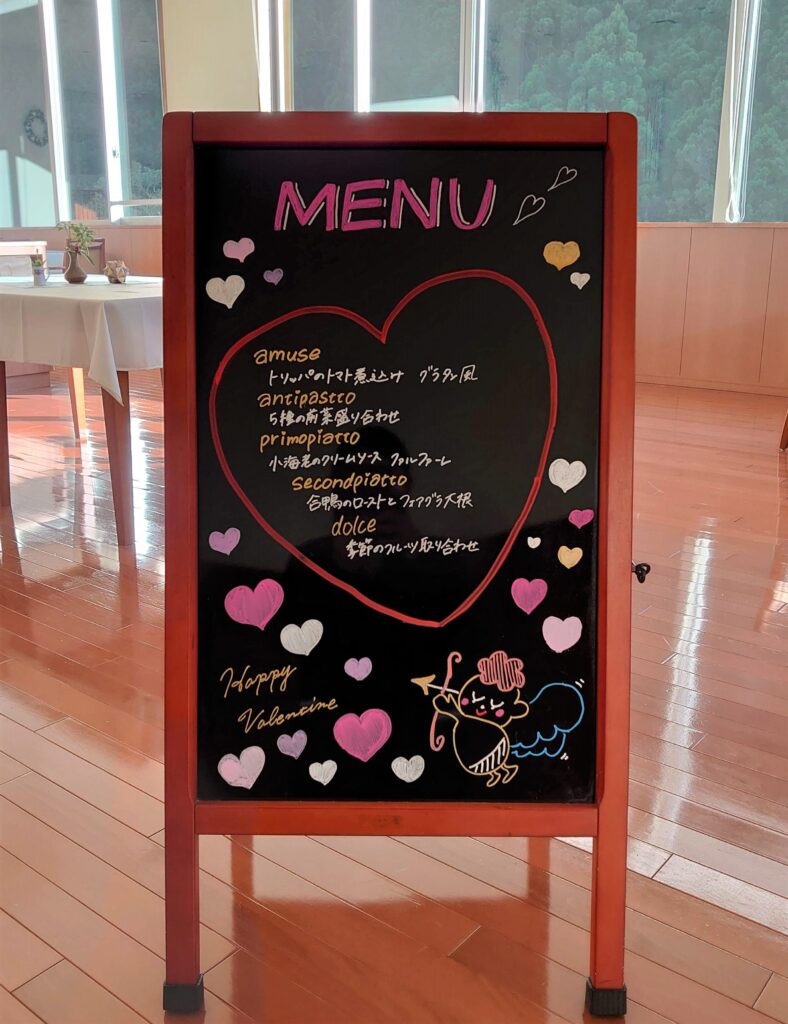 MENU
amuse
トリッパのトマト煮込け グラタン風
antipastto
5種の前菜盛り合わせ
primopiatto
小海老のクリームソース ファルファーレ
secondpiatto
合鴨のローストとフォアグラ大根
dolce
季節のフルーツ取り合わせ
Happy
Valentine